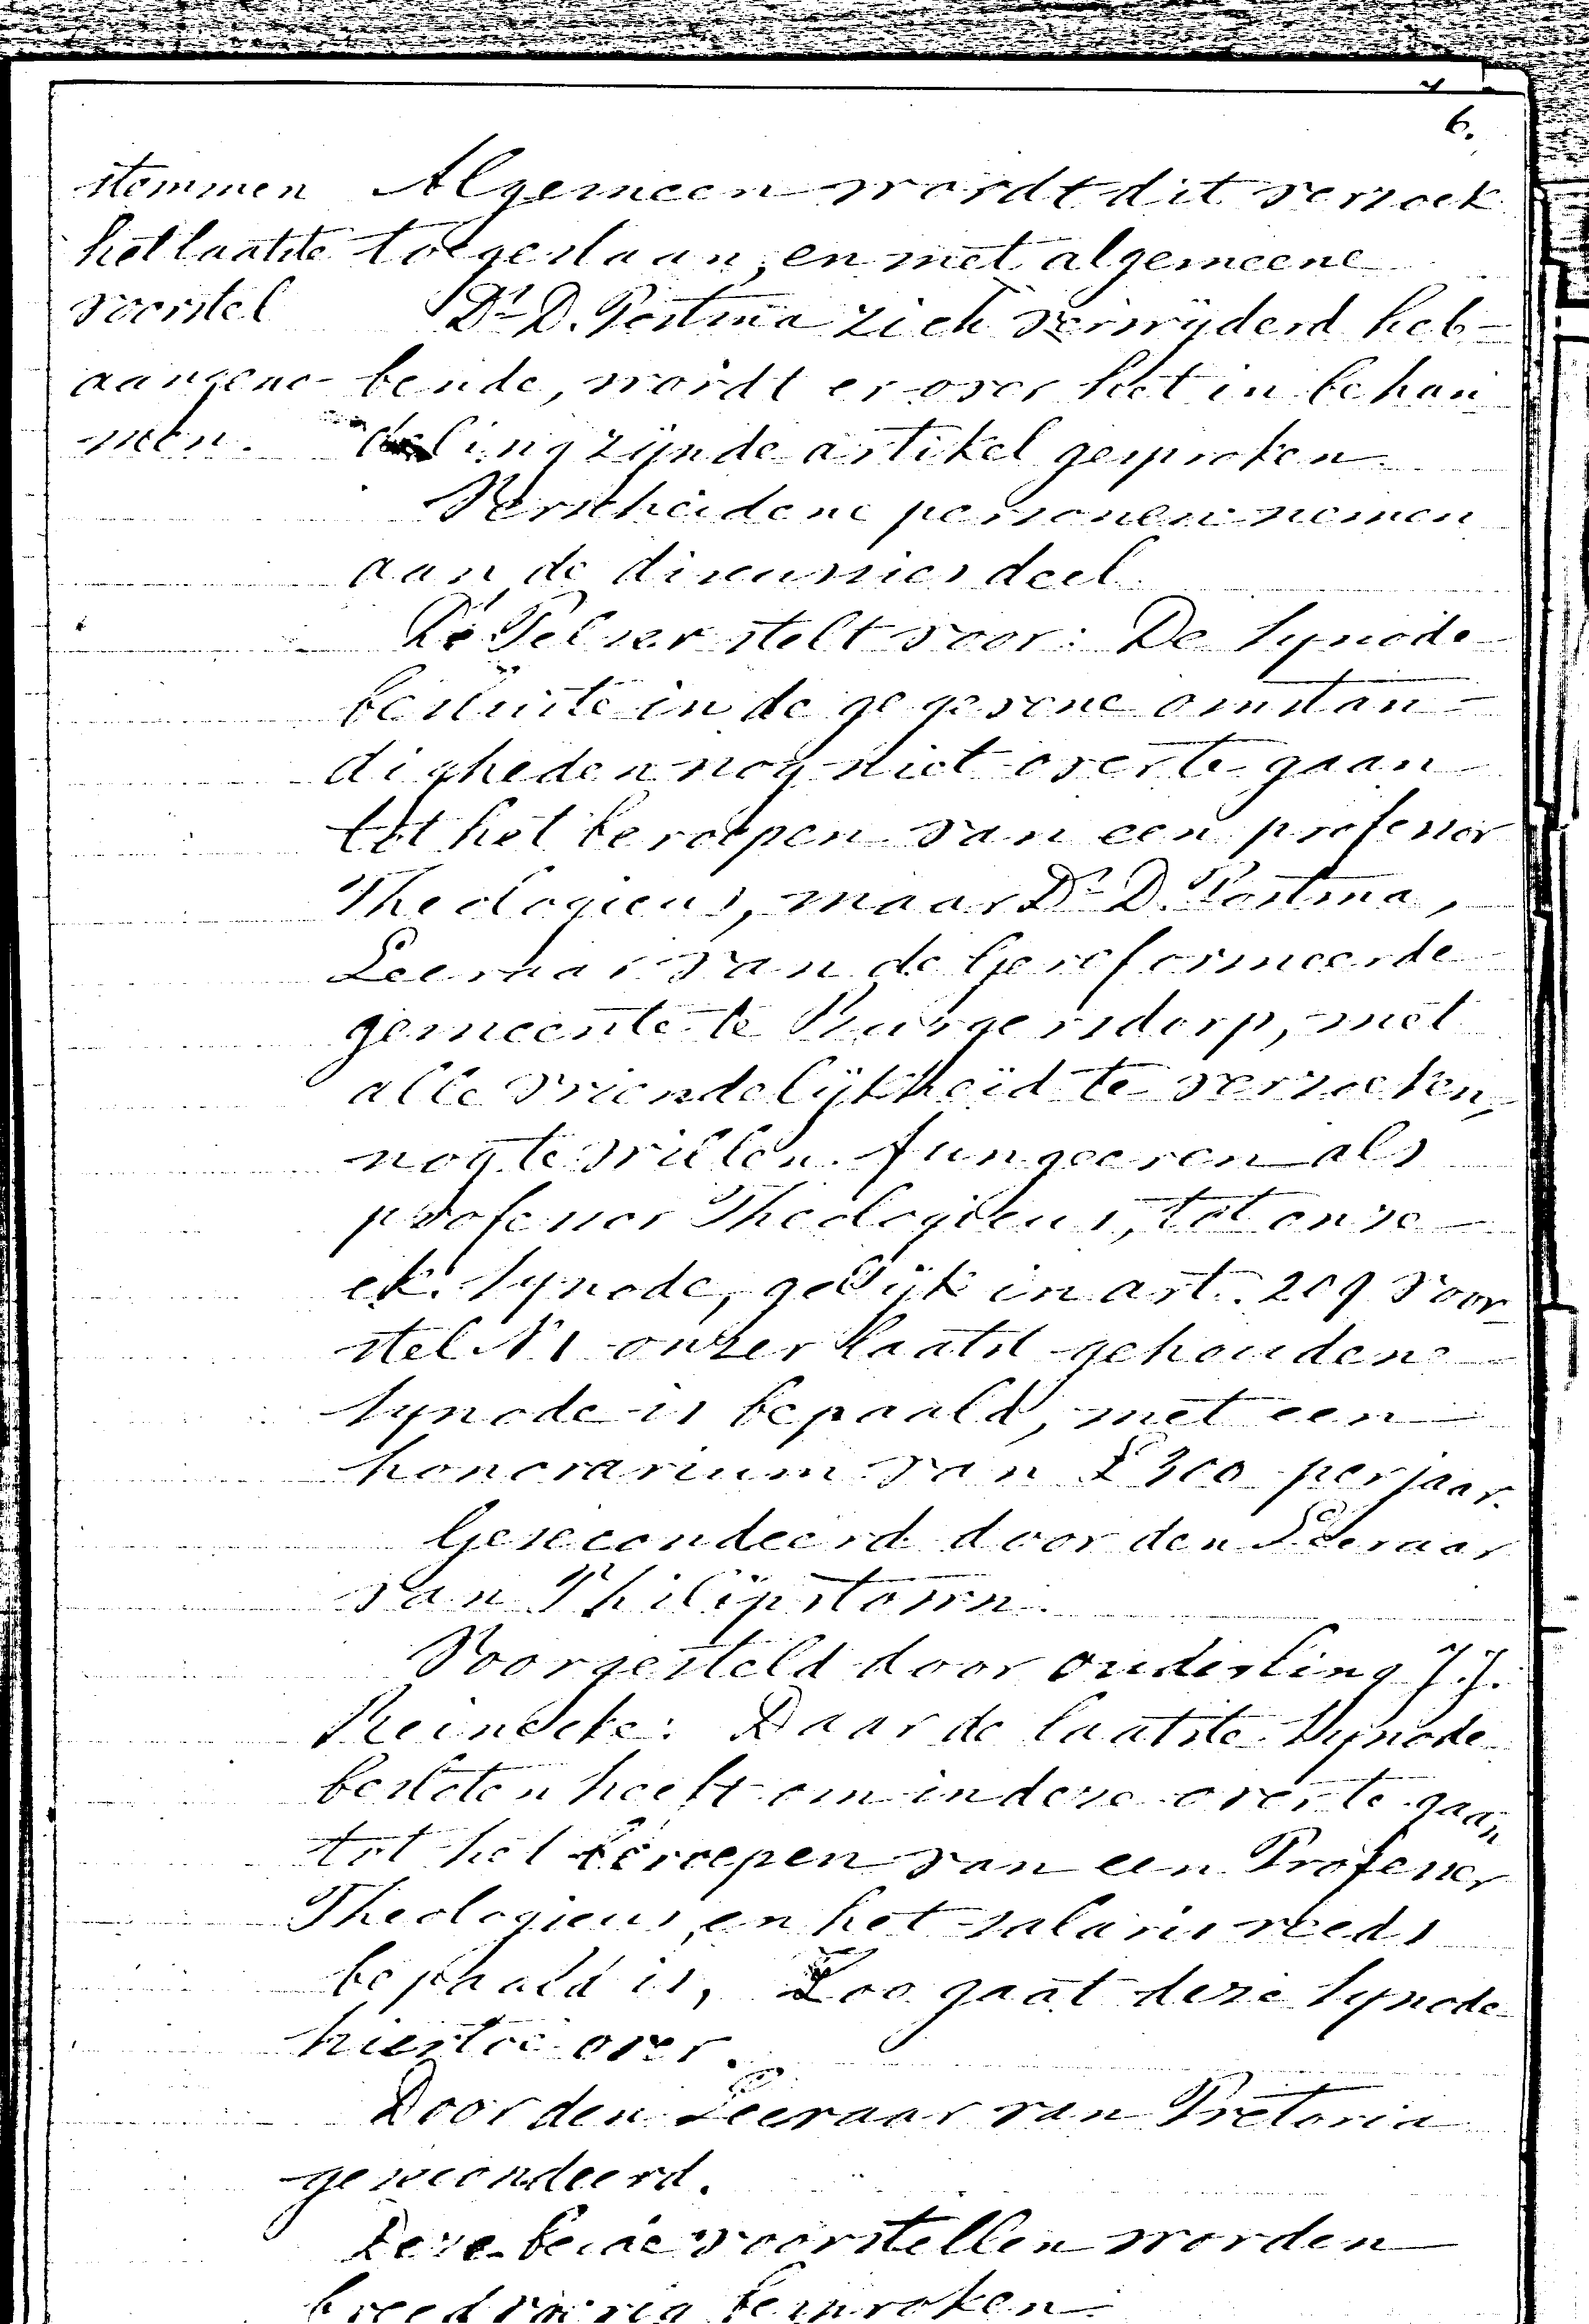 6.
stemmen
het laatste
voorstel
aangeno-
men.
Algemeen wordt dit verzoek
toegestaan, en met algemeene
Ds D. Postma zich verwijderd heb-
bende, wordt er over het in behan
deling zijnde artikel gesproken.
Verscheidene personen nemen
aan de discussies deel.
Ds Pelser stelt voor: De Synode
besluite in de gegevene omstan-
digheden nog niet over te gaan
tot het beroepen van een professor
Theologicus, maar Ds D. Postma,
Leeraar van de Gereformeerde
gemeente te Burgersdorp, met
alle vriendelijkheid te verzoeken,
nog te willen fungeeren als
professor Theologicus, tot onze
ek. Synode, gelijk in art. 209 voor
stel N1 onzer laatst gehoudene
Synode is bepaald, met een
honorarium van £300 per jaar.
Gesecondeerd door den Leeraar
van Philipstown.
Voorgesteld door ouderling J.J.
Reinecke: Daar de laatste Synode
besloten heeft om in deze over te gaan
tot het beroepen van een Professor
Theologicus, en het salaris reeds
bepaald is, Zoo gaat deze Synode
hiertoe over.
Door den Leeraar van Pretoria
gesecondeerd.
Deze beide voorstellen worden
breedvoerig besproken.